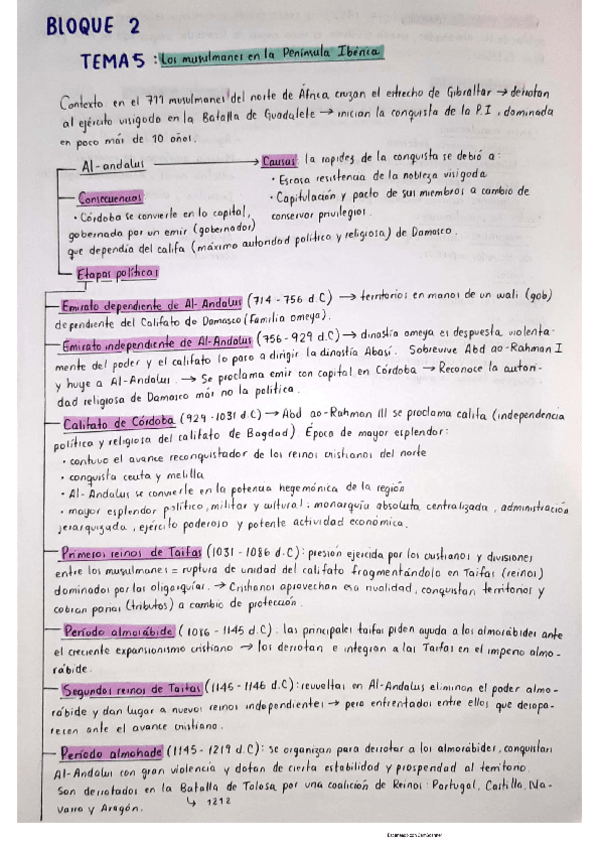 BLOQUE 2
TEMA 5 : Los musulmanes en la Península Ibérica
Contexto en el 711 musulmanes del norte de África cruzan el estrecho de Gibraltar → derrotan
al ejército visigodo en la Batalla de Guadalete → inician la conquista de la P.I, dominada
en poco más de 10 años.
Al-andalus → Causas: la rapidez de la conquista se debió a:
· Escasa resistencia de la nobleza visigoda
· Capitulación y pacto de sus miembros a cambio de
conservar privilegios.
Consecuencias:
· Córdoba se convierte en la capital,
gobernada por un emir (gobernador)
que dependía del califa (máximo autoridad político y religiosa) de Damasco.
Etapas políticas
Emirato dependiente de Al-Andalus (714 - 756 d.C) → territorios en manos de un wali (gob)
dependiente del Califato de Damasco (familia omeya).
Emirato independiente de Al-Andalus (756-929 d.C) → dinastía omeya es despuesta violenta-
mente del poder y el califato lo pasa a dirigir la dinastía Abasí. Sobrevive Abd ao-Rahman I
y huye a Al-Andalus. → Se proclama emir con capital en Córdoba → Reconoce la autori-
dad religiosa de Damasco más no la política.
Califato de Córdoba (929 - 1031 d.C) → Abd ao-Rahman III se proclama califa (independencia
política y religiosa del califato de Bagdad). Época de mayor esplendor:
· contuvo el avance reconquistador de los reinos cristianos del norte
· conquista ceuta y melilla
· Al-Andalus se convierte en la potencia hegemónica de la región
· mayor esplendor político, militar y cultural: monarquía absoluta centralizada, administración
jerarquizada, ejército poderoso y potente actividad económica.
Primeros reinos de Taifas (1031 - 1086 d.C): presión ejercida por los cristianos y divisiones
entre los musulmanes = ruptura de unidad del califato fragmentándolo en Taifas (reinos)
dominados por las oligarquías. → Cristianos aprovechan esa rivalidad, conquistan territorios y
cobran parias (tributos) a cambio de protección.
Período almorábide (1086 - 1145 d.C). las principales taifas piden ayuda a los almorábides ante
el creciente expansionismo cristiano → los derrotan e integran a las Taifas en el imperio almo-
rábide.
Segundos reinos de Taifas (1145 - 1146 d.C): revueltas en Al-Andalus eliminan el poder almo-
rábide y dan lugar a nuevos reinos independientes → pero enfrentados entre ellos que desapa-
recen ante el avance cristiano.
Período almohade (1145 - 1219 d.C): se organizan para derrotar a los almorábides, conquistan
Al-Andalus con gran violencia y dotan de cierta estabilidad y prosperidad al territorio.
Son derrotados en la Batalla de Tolosa por una coalición de Reinos: Portugal, Castilla, Na-
varra y Aragón.
↳ 1212
Escaneado con CamScanner